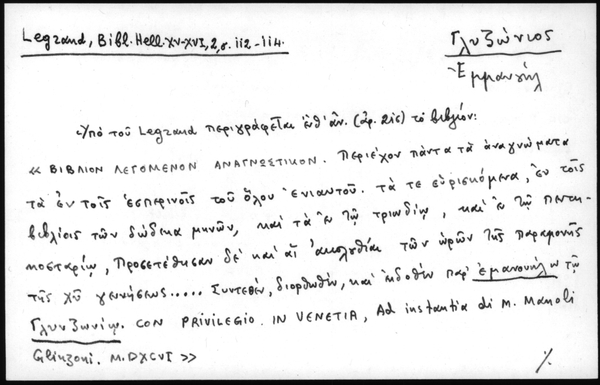 Legrand, Bibl. Hell. XV-XVI, 2, σ. 112-114.
Γλυζώνιος
Ἐμμανουήλ
Ὑπὸ τοῦ Legrand περιγράφεται ἐνθ' ἀν. (ἀρ. 216) τὸ βιβλίον:
« ΒΙΒΛΙΟΝ ΛΕΓΟΜΕΝΟΝ ΑΝΑΓΝΩΣΤΙΚΟΝ. Περιέχον πάντα τὰ ἀναγνώματα
τὰ ἐν τοῖς ἑσπερινοῖς τοῦ ὅλου ἐνιαυτοῦ. τά τε εὑρισκόμενα, ἐν τοῖς
βιβλίοις τῶν δώδεκα μηνῶν, καὶ τὰ ἐν τῷ τριωδίῳ, καὶ ἐν τῷ Πεντη-
κοσταρίῳ, Προσετέθησαν δὲ καὶ αἱ ἀκολουθίαι τῶν ὡρῶν τῆς παραμονῆς
τῆς χῦ γεννήσεως..... Συντεθὲν, διορθωθὲν, καὶ ἐκδοθὲν παρ' ἐμανουήλω τῷ
Γλυνζωνίῳ. CON PRIVILEGIO. IN VENETIA, Ad instantia di M. Manoli
Glinzoni. M.DXCVI »
%